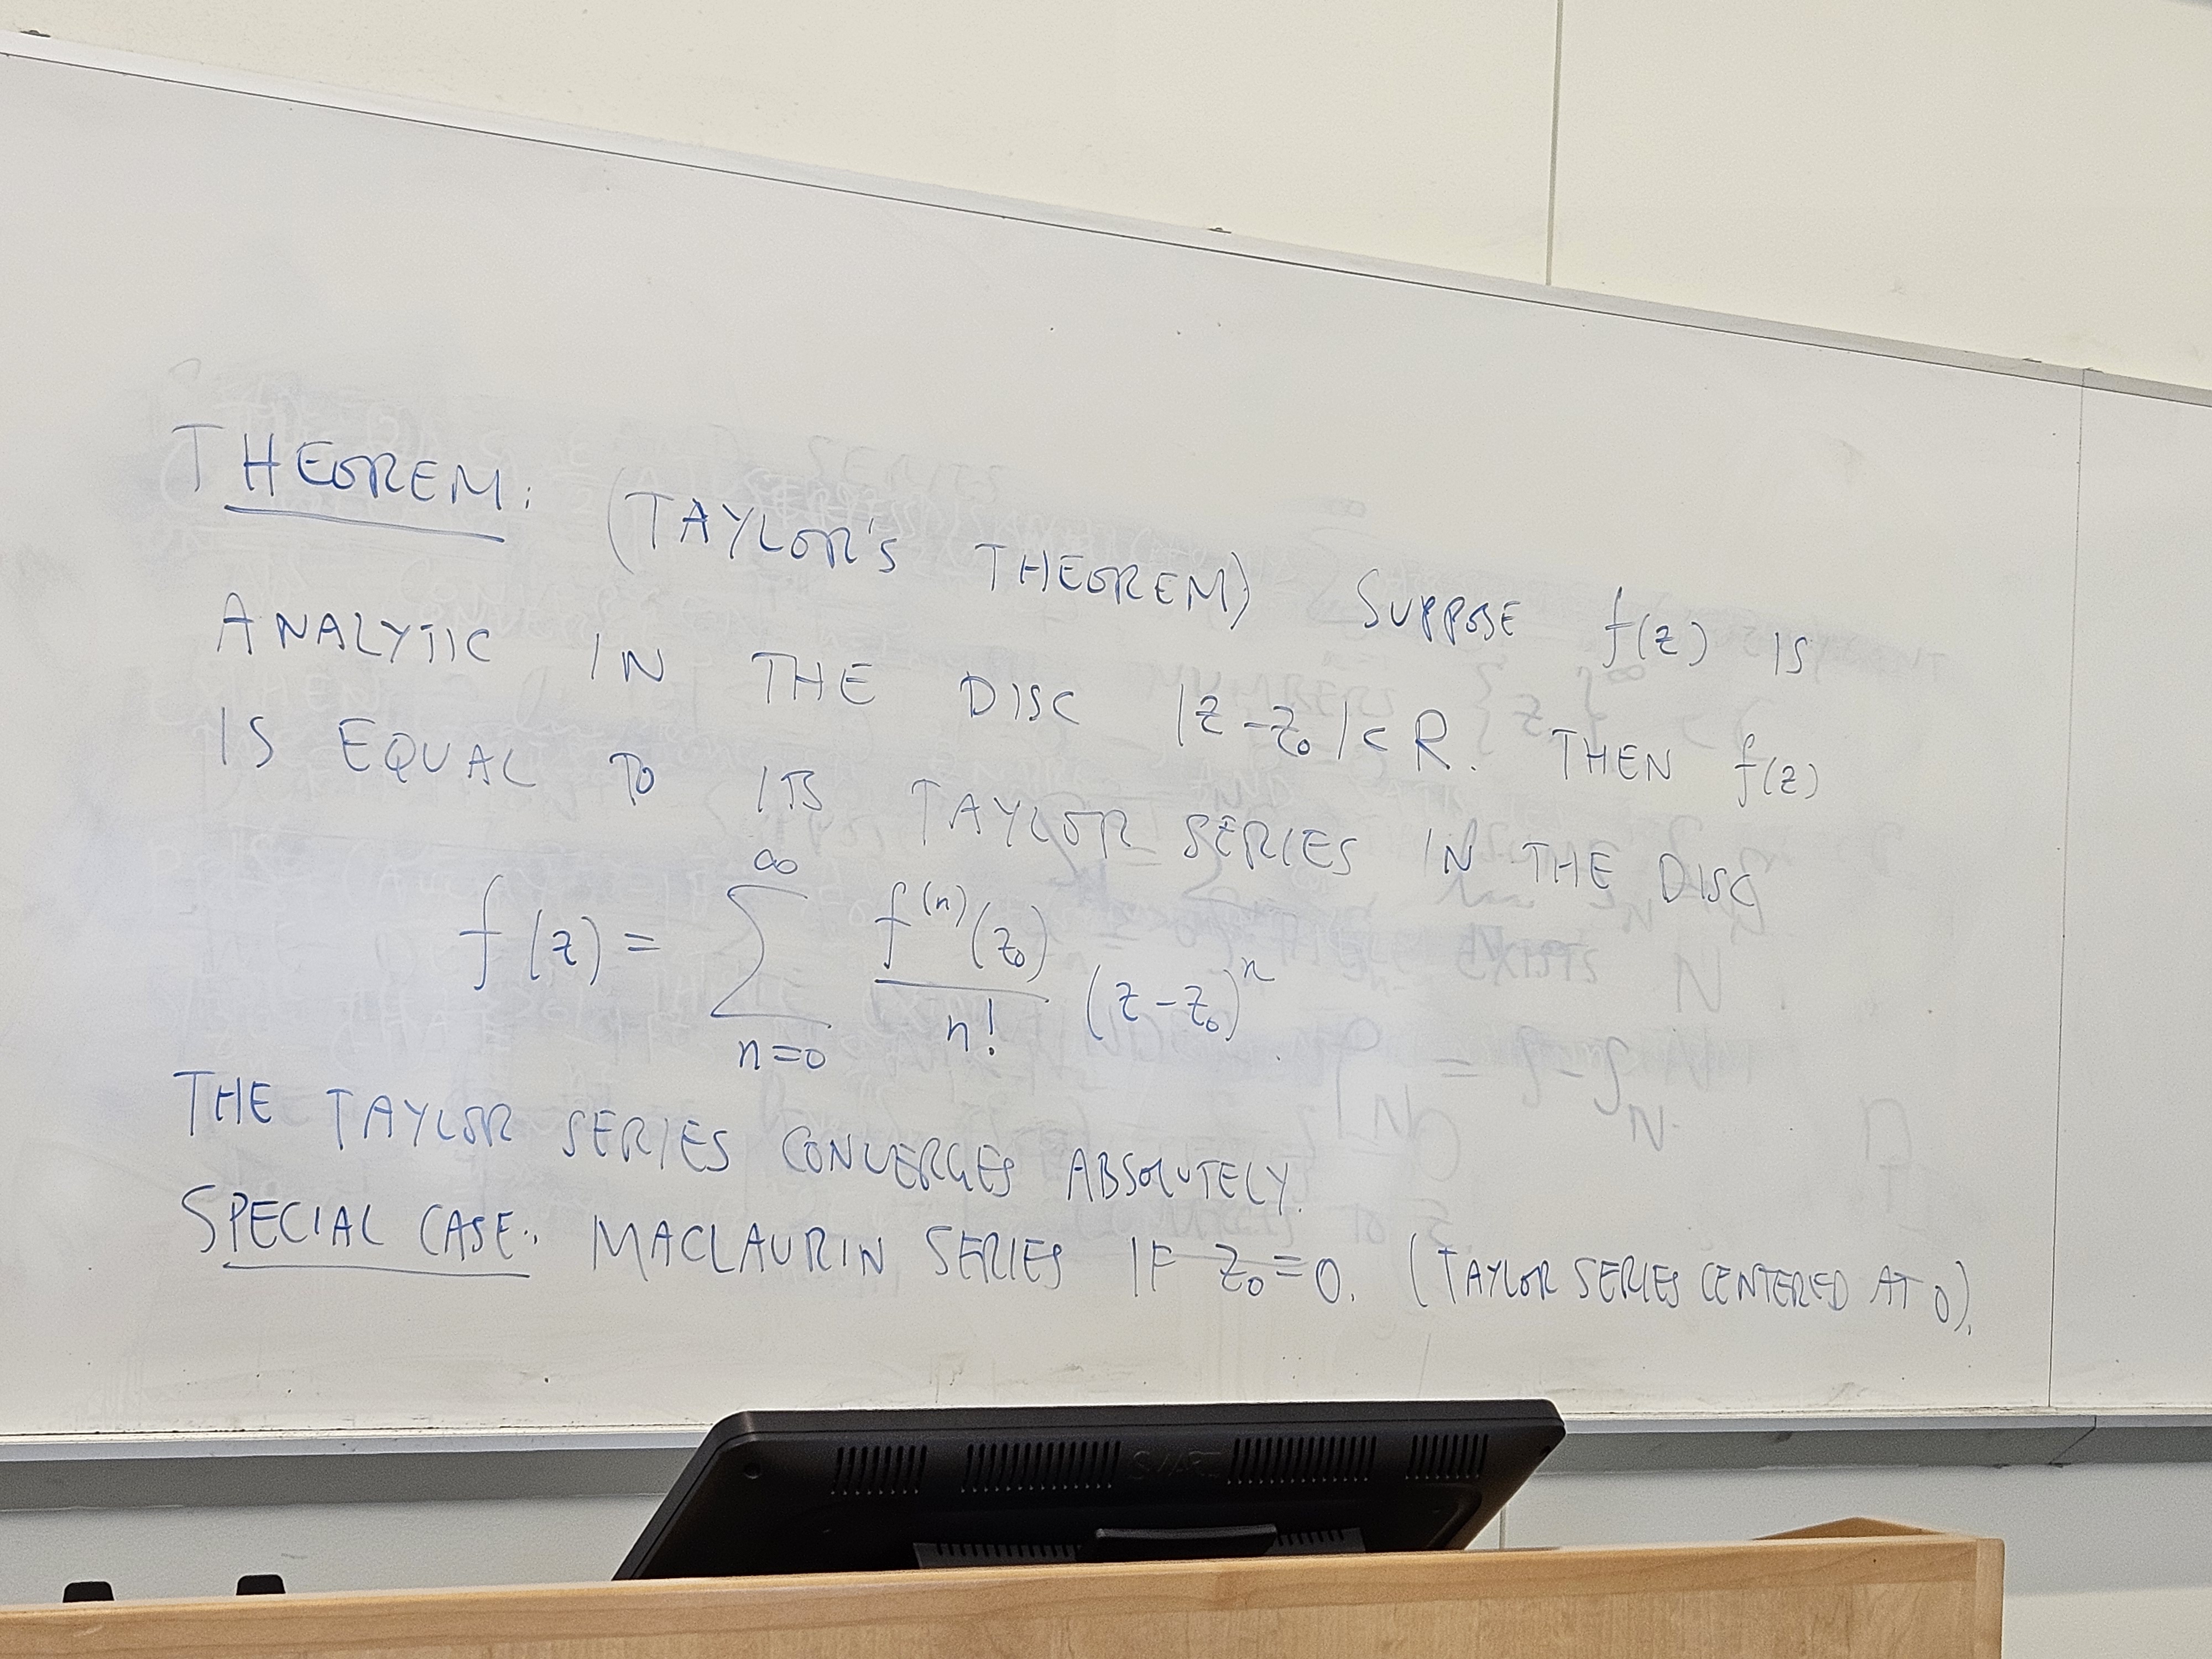 THEOREM: (TAYLOR'S THEOREM) SUPPOSE f(z) IS
ANALYTIC IN THE DISC |z-z₀|<R. THEN f(z)
IS EQUAL TO ITS TAYLOR SERIES IN THE DISC
f(z) = ∑_{n=0}^{∞} f⁽ⁿ⁾(z₀)/n! (z-z₀)ⁿ.
THE TAYLOR SERIES CONVERGES ABSOLUTELY.
SPECIAL CASE: MACLAURIN SERIES IF z₀=0. (TAYLOR SERIES CENTERED AT 0).